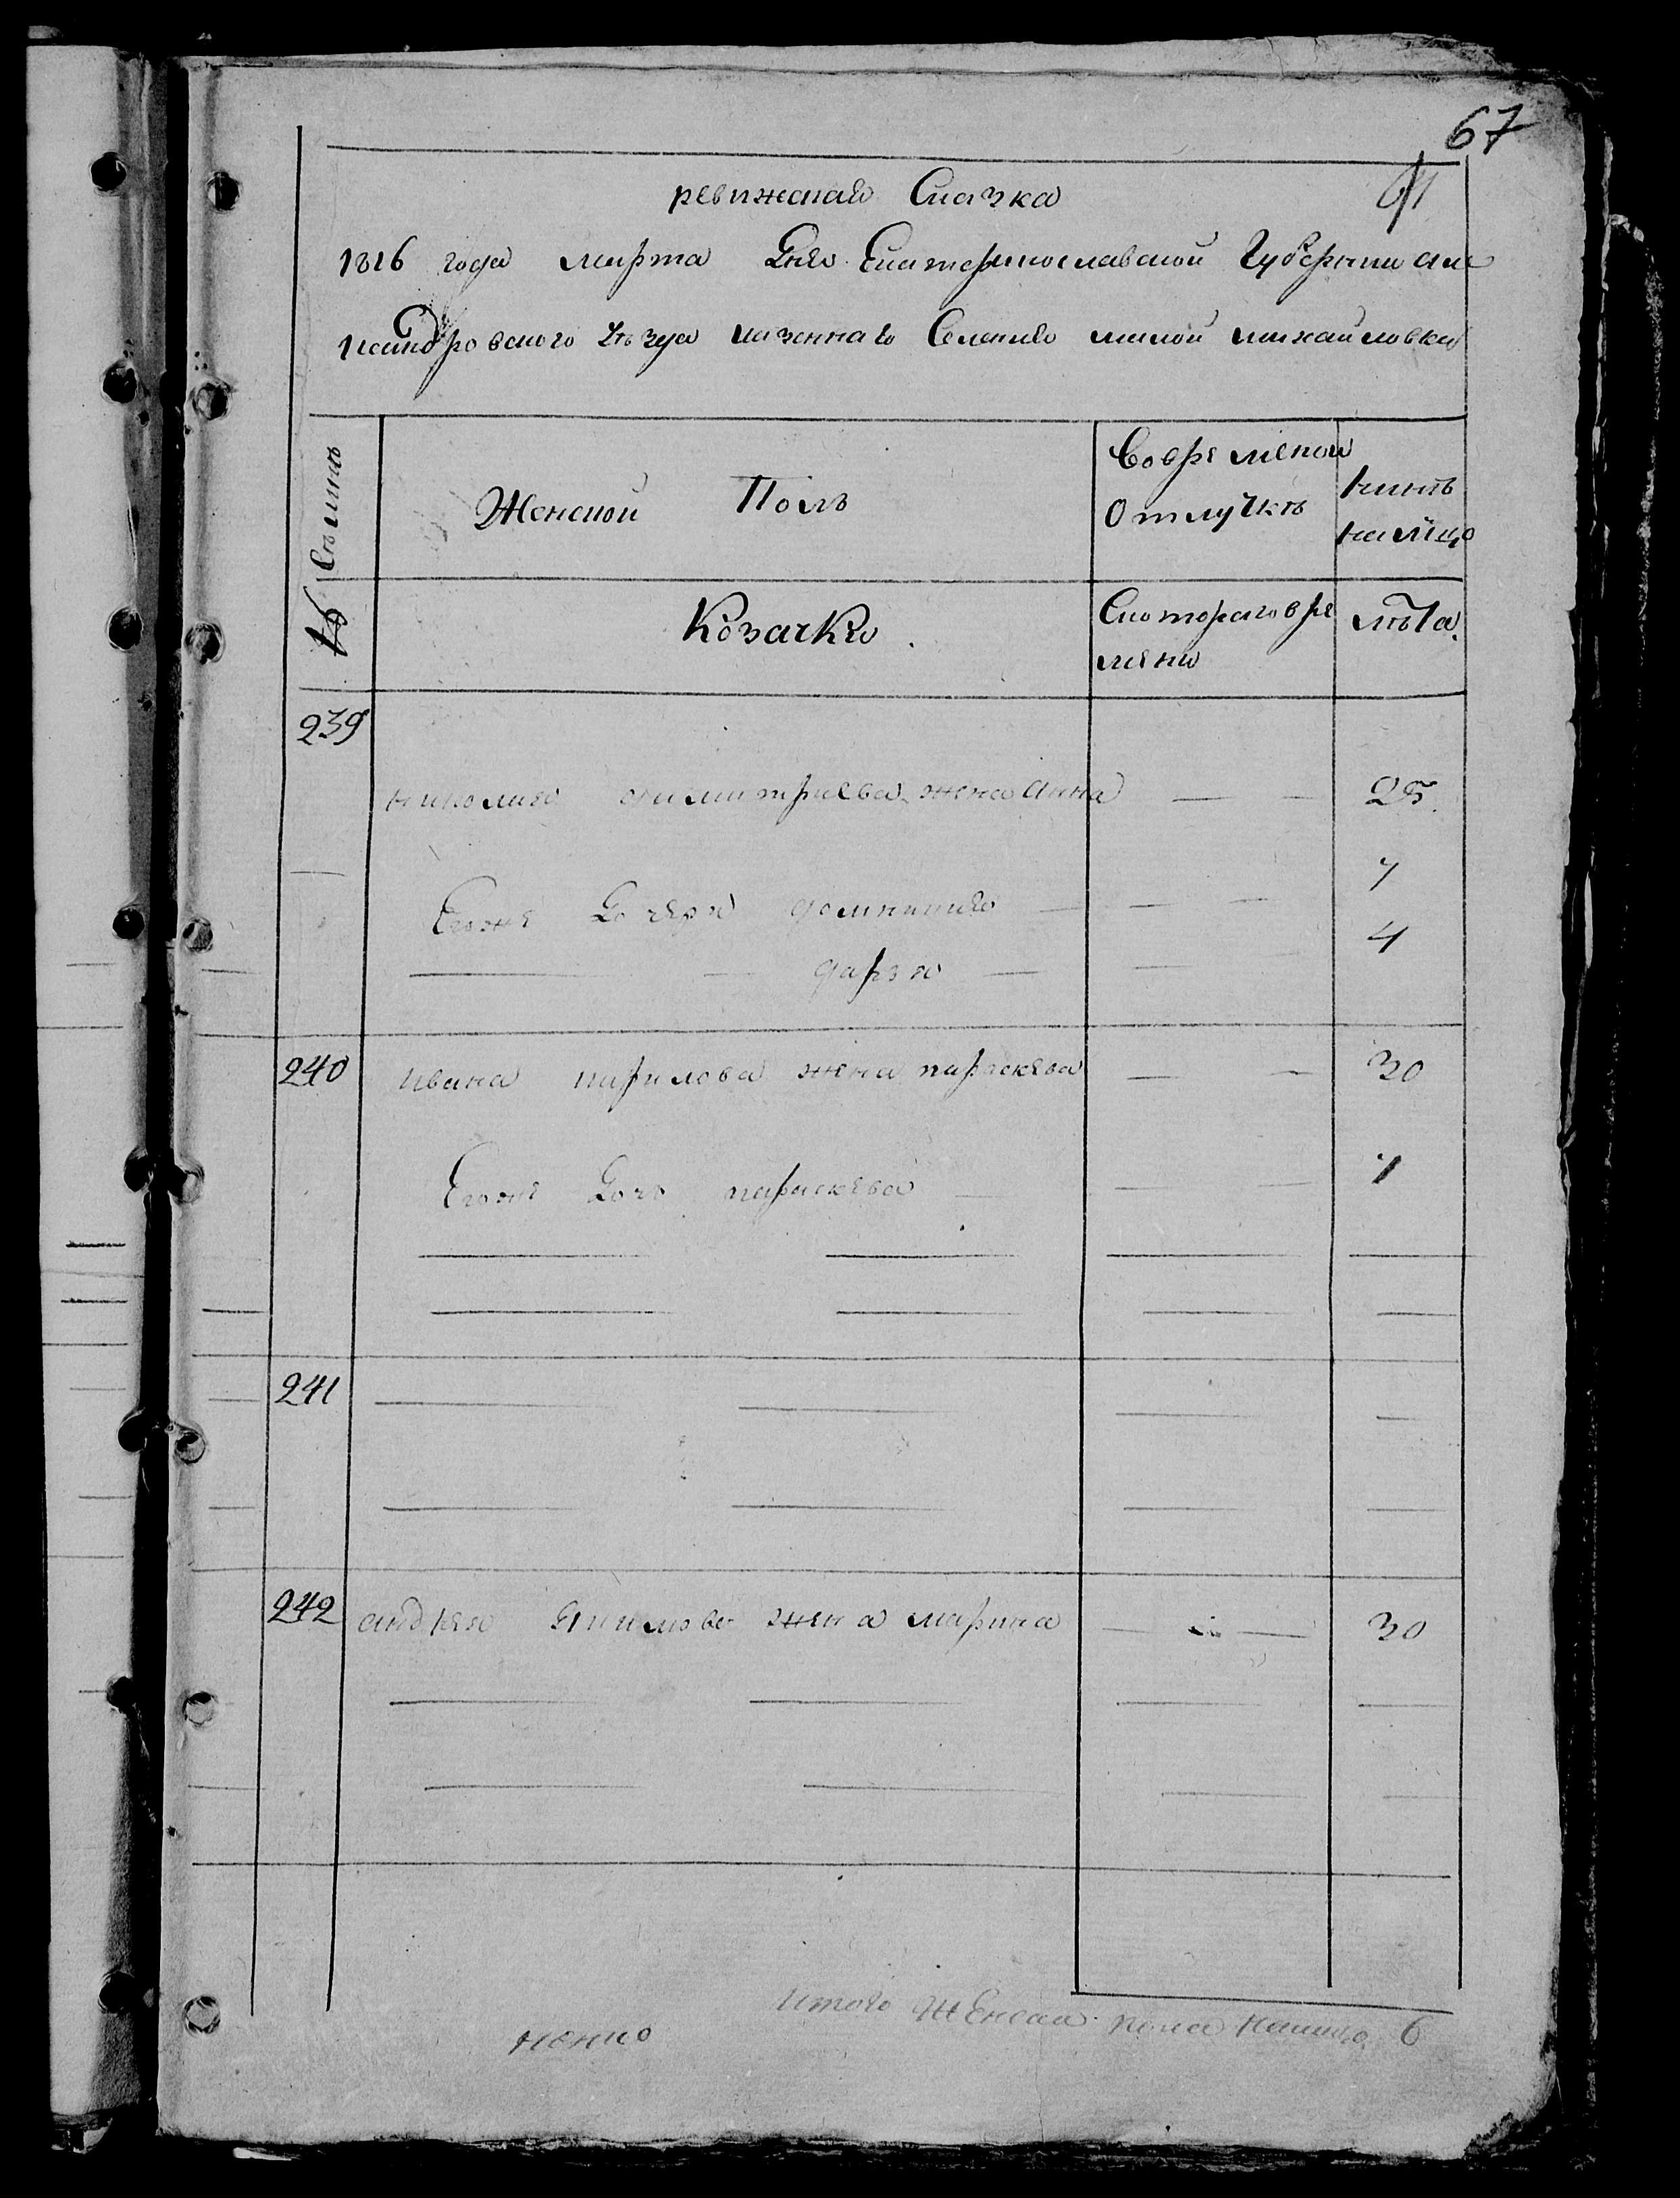 67
ревижская Сказка
1816 года марта дня Екатеринославской Губернии але
ксандровского уезда казеннаго Селения малой михайловки
Семьи
Женской Полъ
Вовременой
Отлучкѣ
Нинѣ
налицо
№
Козачкы
Скотораго вре
мени
лѣта
239
николая димитриева жена анна 25
Егоже дочеря домникия 7
дарья 4
240 ивана кирилова жена параскева 30
Егоже дочь параскева 1
241
242 андрея жена марина 30
итого женска пола налицо 6